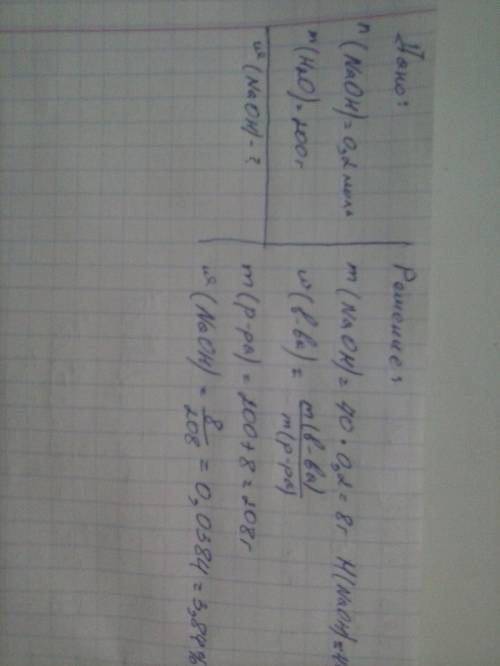 Дано:
n(NaOH)=0,2 моль
m(H₂O)=200г
ω(NaOH)-?
Решение:
m(NaOH)=40·0,2=8г M(NaOH)=4
ω(в-ва)= m(в-ва)/m(р-ра)
m(р-ра)=200+8=208г
ω(NaOH)= 8/208 =0,0384=3,84%